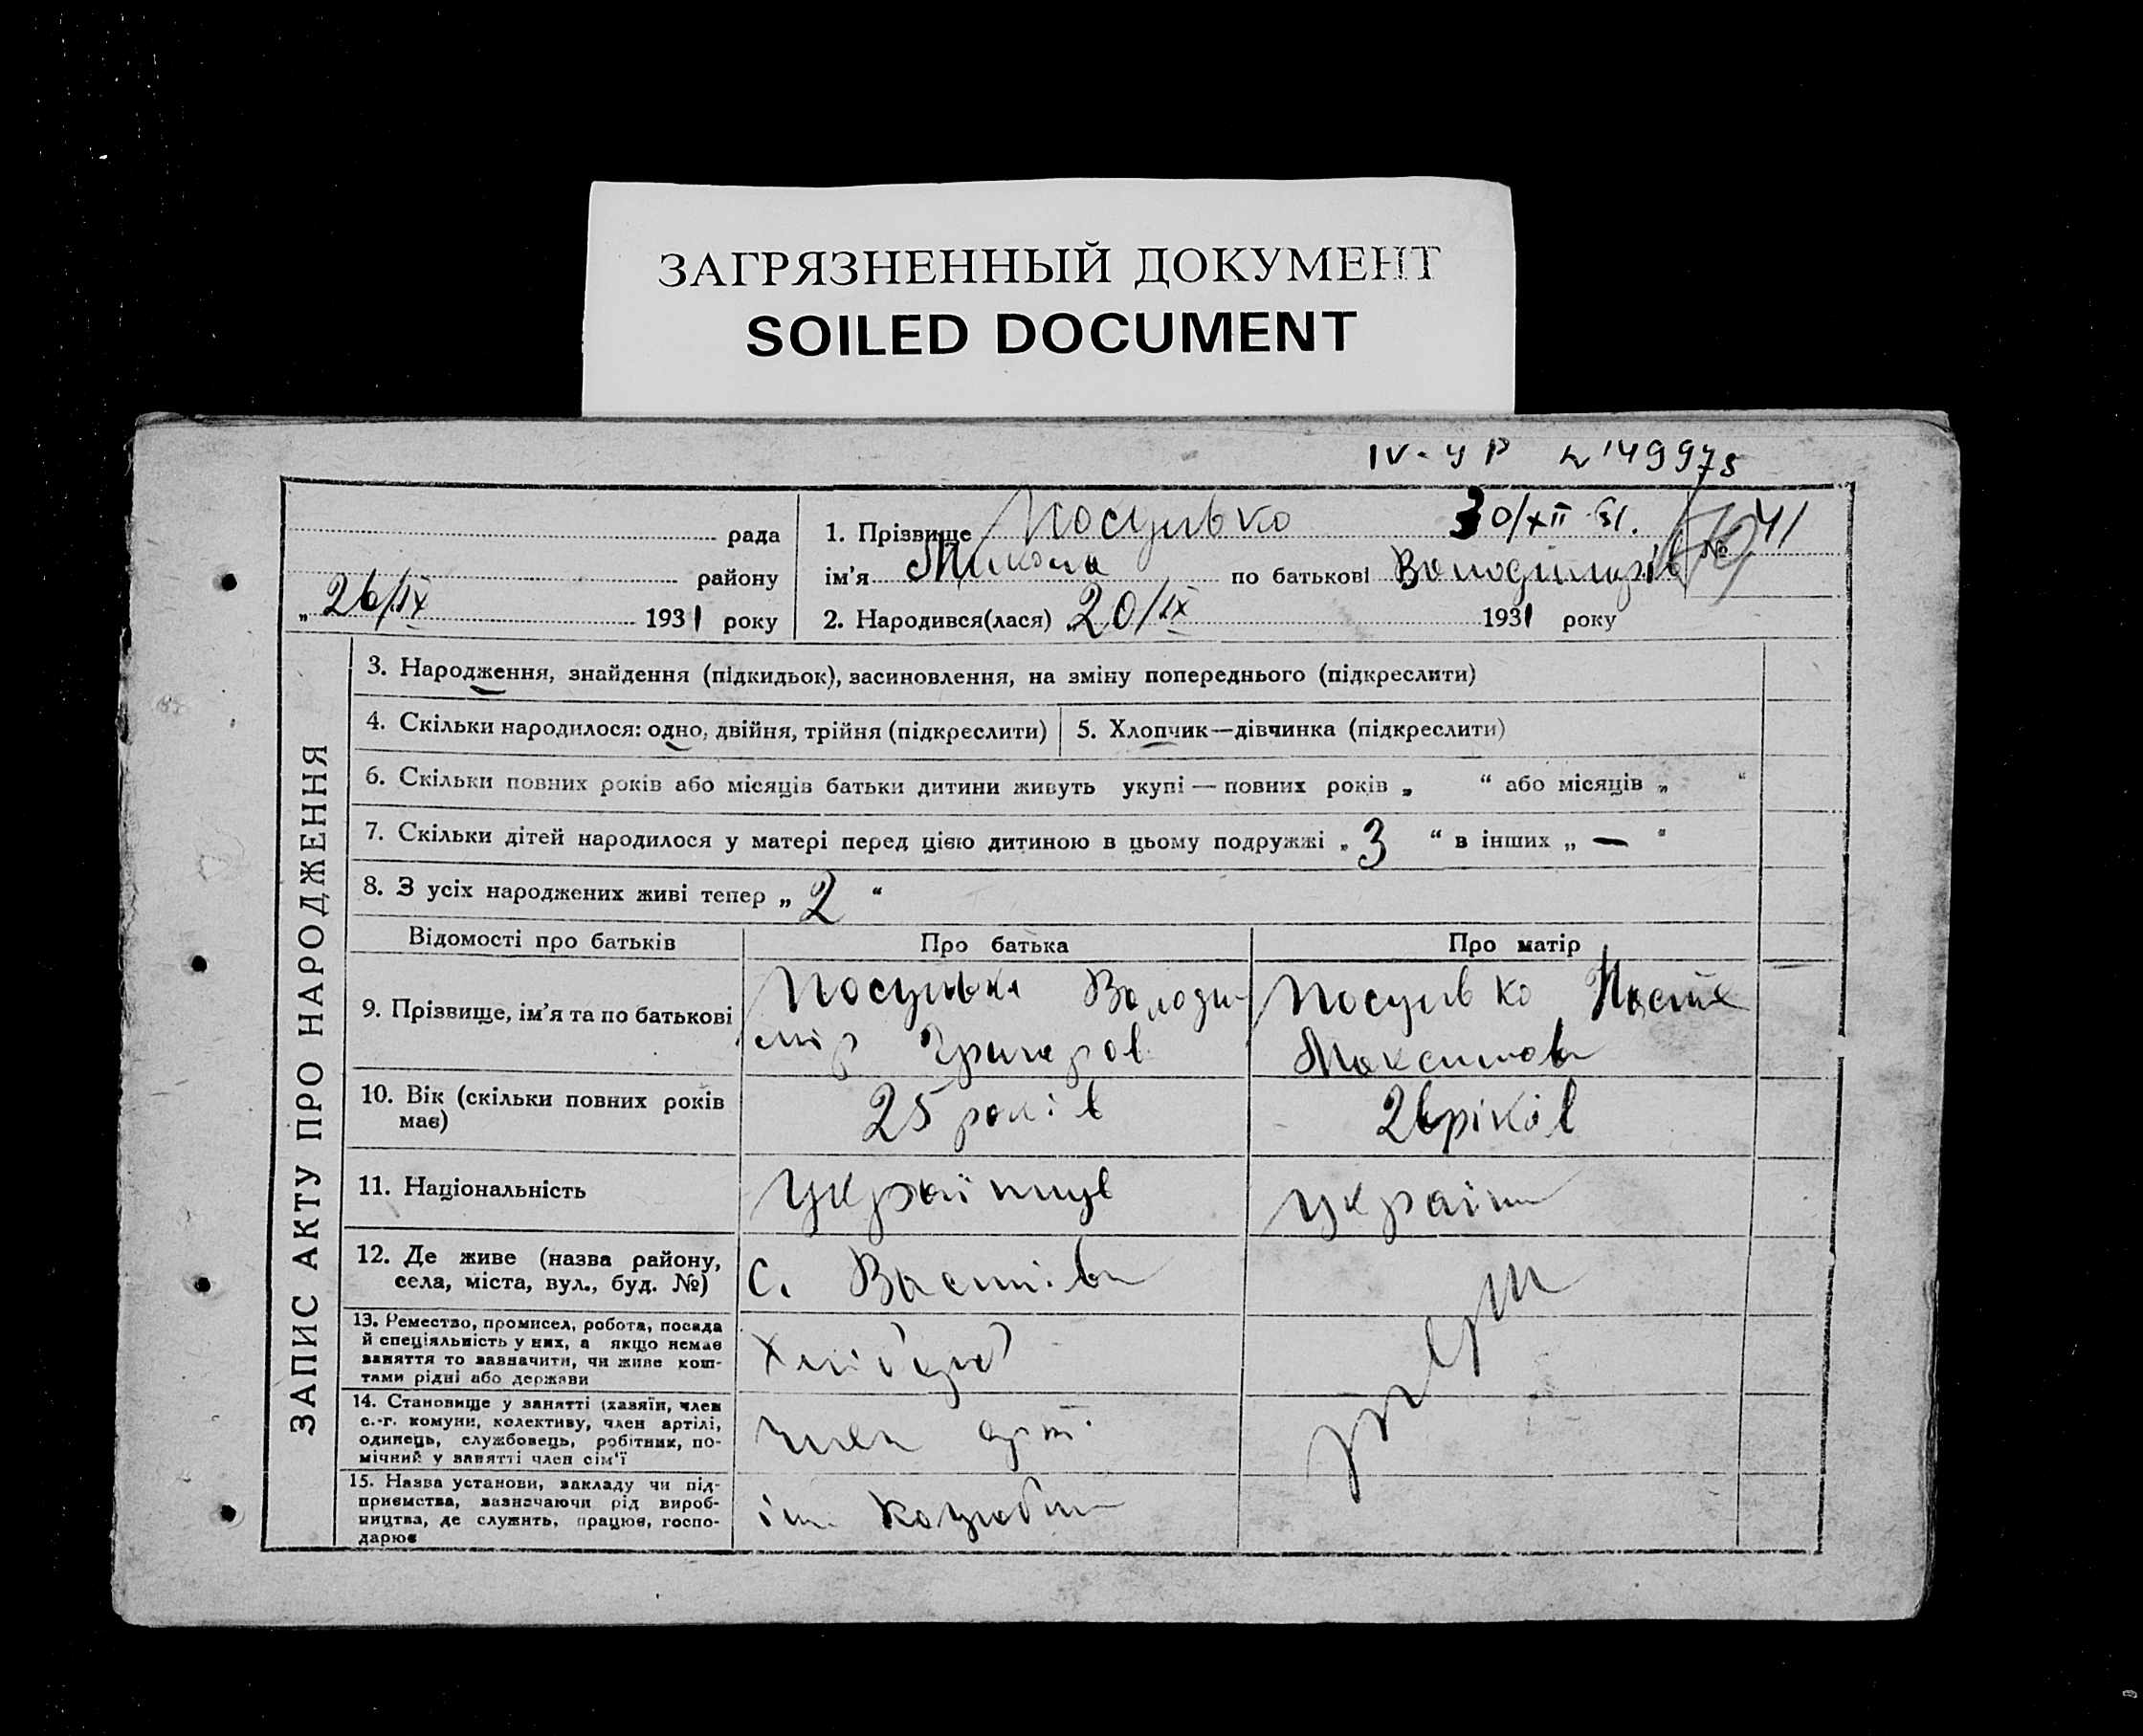 ЗАГРЯЗНЕННЫЙ ДОКУМЕНТ
SOILED DOCUMENT
IV-УР № 149975
рада
району
26/IX 1931 року
1. Прізвище Носулько 30/XII 31.
ім'я Микола по батькові Володимирів
№ 41
2. Народився(лася) 20/IX 1931 року
ЗАПИС АКТУ ПРО НАРОДЖЕННЯ
3. Народження, знайдення (підкидьок), засиновлення, на зміну попереднього (підкреслити)
4. Скільки народилося: одно, двійня, трійня (підкреслити)
5. Хлопчик—дівчинка (підкреслити)
6. Скільки повних років або місяців батьки дитини живуть укупі — повних років „ “ або місяців „ “
7. Скільки дітей народилося у матері перед цією дитиною в цьому подружжі „ 3 “ в інших „ — “
8. З усіх народжених живі тепер „ 2 “
Відомості про батьків
Про батька
Про матір
9. Прізвище, ім'я та по батькові
Носулько Володи
мір Григоров
Носулько
Максимов
10. Вік (скільки повних років
має)
25 років
26 років
11. Національність
українець
україн
12. Де живе (назва району,
села, міста, вул., буд. №)
с.
13. Ремество, промисел, робота, посада
й спеціяльність у них, а якщо немає
заняття то зазначити, чи живе кош-
тами рідні або держави
Хлібороб
14. Становище у занятті (хазяїн, член
с.-г. комуни, колективу, член артілі,
одинець, службовець, робітник, по-
мічний у занятті член сім'ї
член арт
15. Назва установи, закладу чи під-
приємства, зазначаючи рід вироб-
ництва, де служить, працює, госпо-
дарює
ім.